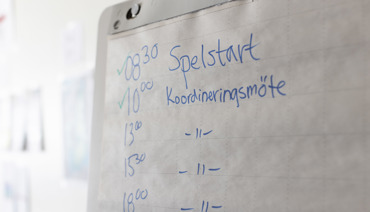 ✓ 08³⁰ Spelstart
✓ 10⁰⁰ Koordineringsmöte
13⁰⁰ -"-
15³⁰ -"-
18⁰⁰ -"-